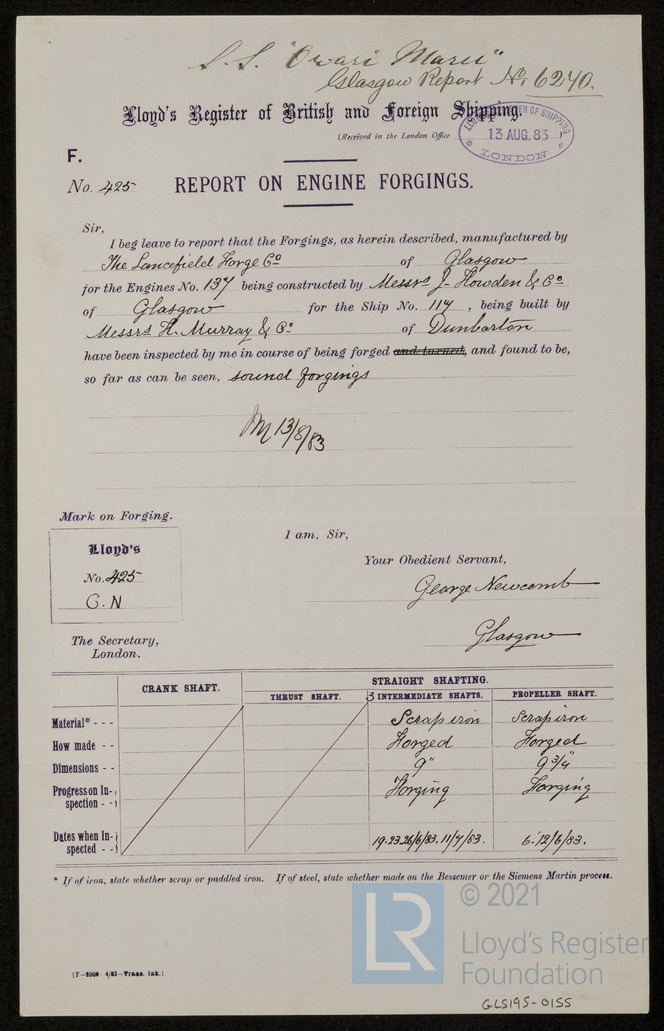 S.S. "Owari Maru"
Glasgow Report No. 6240.
Lloyd's Register of British and Foreign Shipping.
(Received in the London Office
LLOYD'S REGISTER OF SHIPPING
13 AUG. 83
LONDON
F.
No. 425 REPORT ON ENGINE FORGINGS.
Sir,
I beg leave to report that the Forgings, as herein described, manufactured by
The Lancefield Forge Co of Glasgow
for the Engines No. 137 being constructed by Messrs J. Howden & Co
of Glasgow for the Ship No. 114, being built by
Messrs H. Murray & Co of Dunbarton
have been inspected by me in course of being forged and turned, and found to be,
so far as can be seen, sound forgings
13/8/83
Mark on Forging.
I am, Sir,
Lloyd's
Your Obedient Servant,
No. 425
George Newcomb
G.N
Glasgow
The Secretary,
London.
STRAIGHT SHAFTING.
CRANK SHAFT. THRUST SHAFT. 3 INTERMEDIATE SHAFTS. PROPELLER SHAFT.
Material* - - - Scrap iron Scrap iron
How made - - Forged Forged
Dimensions - - 9" 9 3/4"
Progress on In-
spection - - Forging Forging
Dates when In-
spected - - 19.23.26/6/83. 11/7/83. 6.12/6/83.
* If of iron, state whether scrap or puddled iron. If of steel, state whether made on the Bessemer or the Siemens Martin process.
LR
© 2021
Lloyd's Register
Foundation
[7-2008 4/83-Trans. Ink.]
GLS195-0155